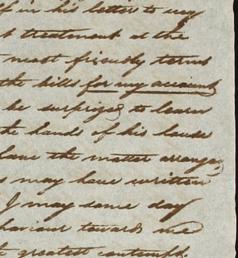 in his letter to my
treatment at the
most friendly terms
the bills for my account
be surprized to learn
the hands of his
have the matter arranged
may have written
I may some day
behaviour towards me
greatest contempt